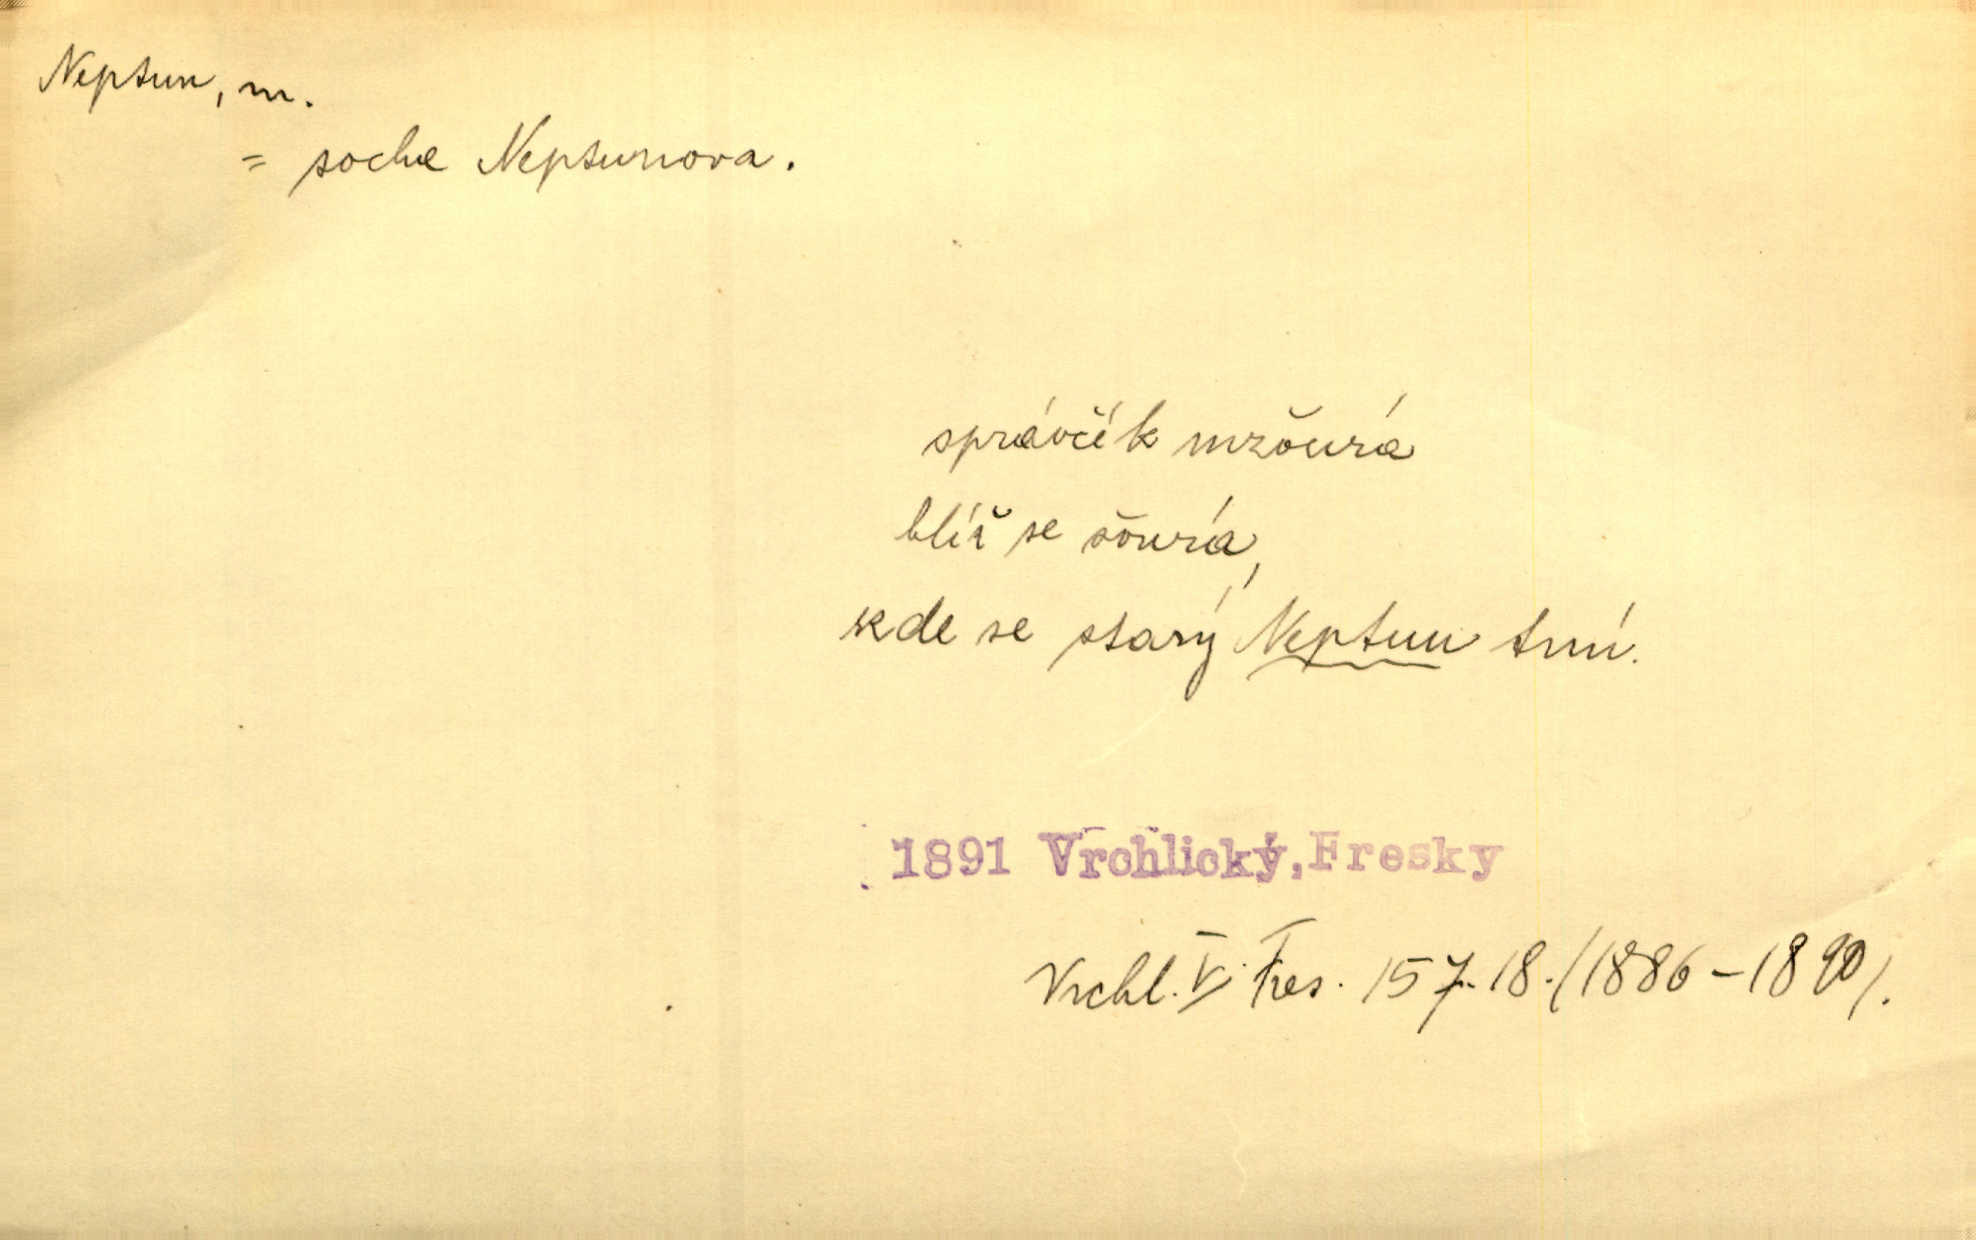 Neptun, m.
= socha Neptunova.
správčík mžourá
blíž se šourá,
kde se starý Neptun tmí.
1891 Vrchlický, Fresky
Vrchl. V. Fres. 157. 18. (1886–1890).